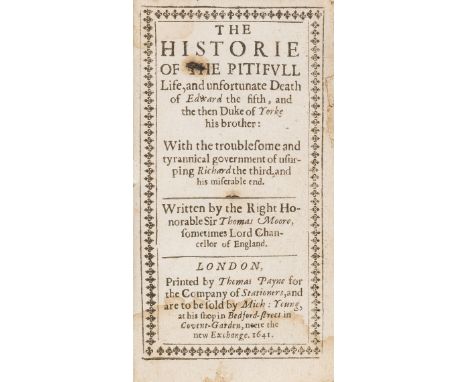 THE
HISTORIE
OF THE PITIFVLL
Life, and unfortunate Death
of Edward the fifth, and
the then Duke of Yorke
his brother:
With the troublesome and
tyrannical government of usur-
ping Richard the third, and
his miserable end.
Written by the Right Ho-
norable Sir Thomas Moore,
sometimes Lord Chan-
cellor of England.
LONDON,
Printed by Thomas Payne for
the Company of Stationers, and
are to be sold by Mich: Young,
at his shop in Bedford-street in
Covent-Garden, neere the
new Exchange. 1641.